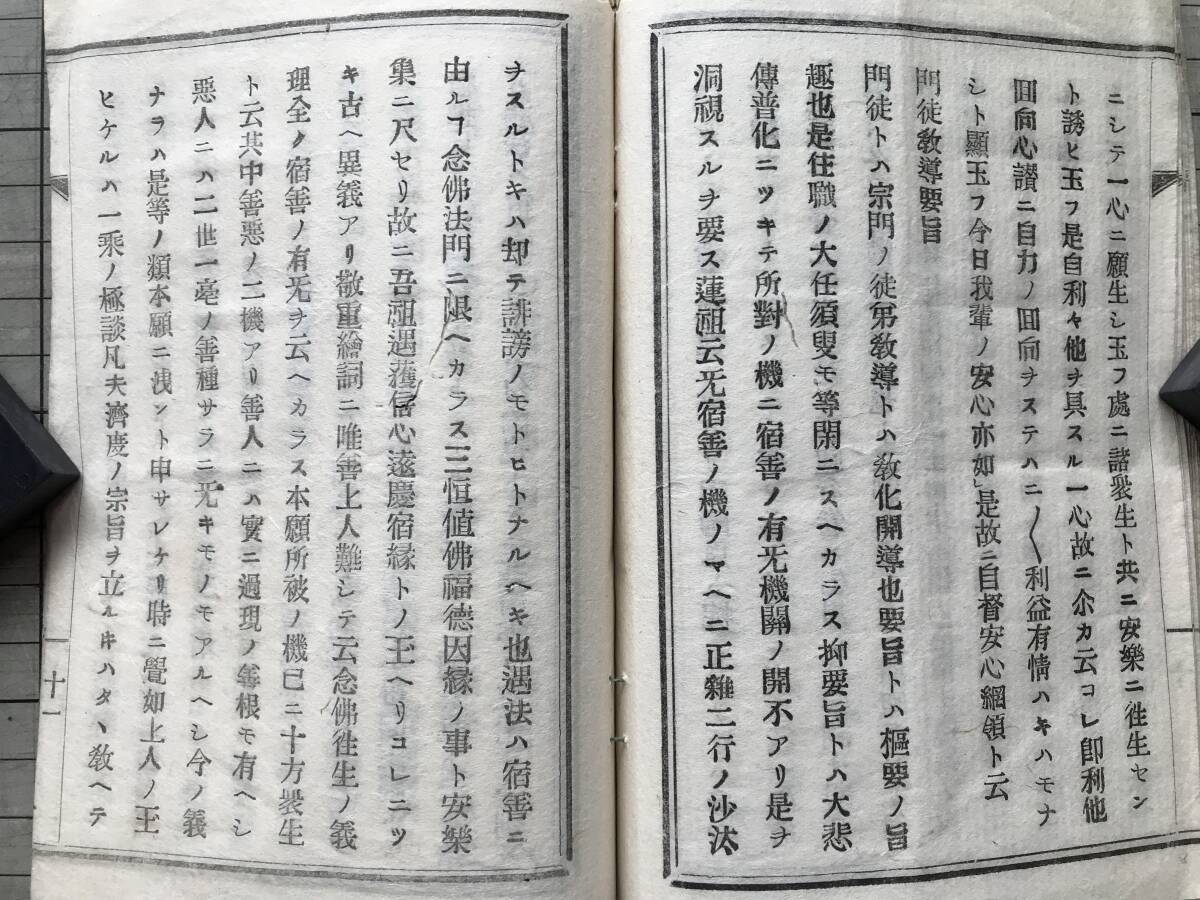 ニシテ一心ニ願生シ玉フ處ニ諸衆生ト共ニ安樂ニ徃生セン
ト誘ヒ玉フ是自利々他ヲ具スル一心故ニ尒カ云コレ卽利他
回向心讃ニ自力ノ回向ヲステハニ〱利益有情ハキハモナ
シト顯玉フ今日我輩ノ安心亦如」是故ニ自督安心綱領ト云
門徒敎導要旨
門徒トハ宗門ノ徒弟敎導トハ敎化開導也要旨トハ樞要ノ旨
趣也是住職ノ大任須臾モ等閑ニスヘカラス抑要旨トハ大悲
傳普化ニツキテ所對ノ機ニ宿善ノ有无機關ノ開不アリ是ヲ
洞視スルヲ要ス蓮祖云无宿善ノ機ノマヘニ正雜二行ノ沙汰
ヲスルトキハ却テ誹謗ノモトヒトナルヘキ也遇法ハ宿善ニ
由ルヿ念佛法門ニ限ヘカラス三恒値佛福德因緣ノ事ト安樂
集ニ尺セリ故ニ吾祖遇獲信心遠慶宿緣トノ玉ヘリコレニツ
キ古ヘ異義アリ敬重繪詞ニ唯善上人難シテ云念佛徃生ノ義
理全ク宿善ノ有无ヲ云ヘカラス本願所被ノ機已ニ十方衆生
ト云其中善惡ノ二機アリ善人ニハ實ニ過現ノ善根モ有ヘシ
惡人ニハ二世一毫ノ善種サラニ无キモノモアルヘシ今ノ義
ナラハ是等ノ類本願ニ浅ント申サレケリ時ニ覺如上人ノ玉
ヒケルハ一乘ノ極談凡夫濟度ノ宗旨ヲ立ルキハタヽ敎ヘテ
十一